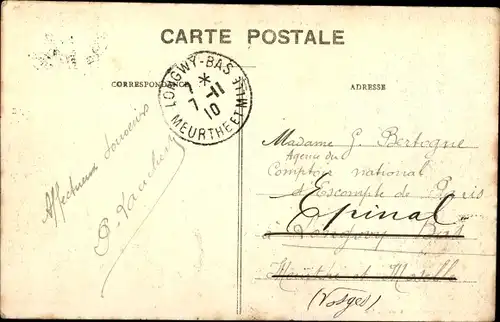 CARTE POSTALE
CORRESPONDANCE
ADRESSE
LONGWY-BAS
7 *
7 -11
10
MEURTHE ET MLLE
Affectueux souvenirs
Madame G. Bertogne
Agence du
Comptoir national
d'Escompte de Paris
Epinal
à Longwy Bas
Meurthe et Moselle
(Vosges)